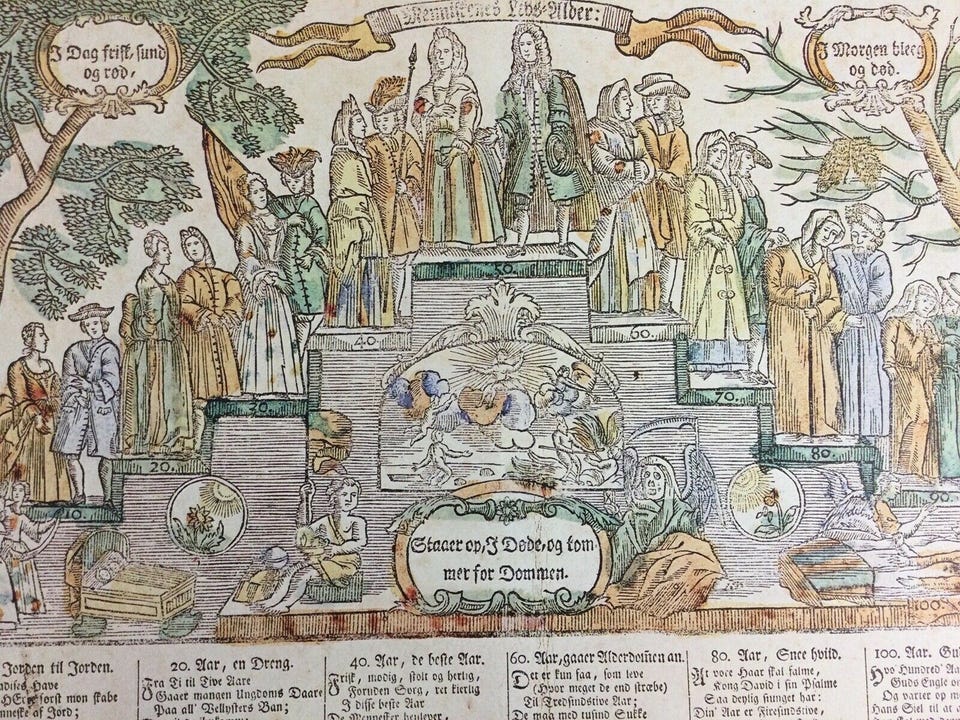 Menniskenes Livs-Alder:
I Dag frisk, sund
og rød,
I Morgen bleeg
og død.
50.
40.
60.
30.
70.
20.
80.
10.
90.
Staaer op, I Døde, og kom-
mer for Dommen.
100.
Jorden til Jorden.
adises Have
HErre først mon skabe
nneske af Jord;
20. Aar, en Dreng.
Fra Ti til Tive Aare
Gaaer mangen Ungdoms Daare
Paa all' Vellysters Ban;
40. Aar, de beste Aar.
Frisk, modig, stolt og herlig,
Foruden Sorg, ret kierlig
I disse beste Aar
De Mennesker
60. Aar, gaaer Alderdommen an.
Det er kun faa, som leve
(Hvor meget de end stræbe)
Til Tredsindstive Aar;
De maa med tusind Sukke
80. Aar, Snee hviid.
At vore Haar skal falme,
Kong David i sin Psalme
Saa deylig siunget har:
Din' Aar er Firesindstive,
100. Aar. Gu
Hvo Hundred' Aa
Guds Engle o
Og varier op m
Hans Siel til at